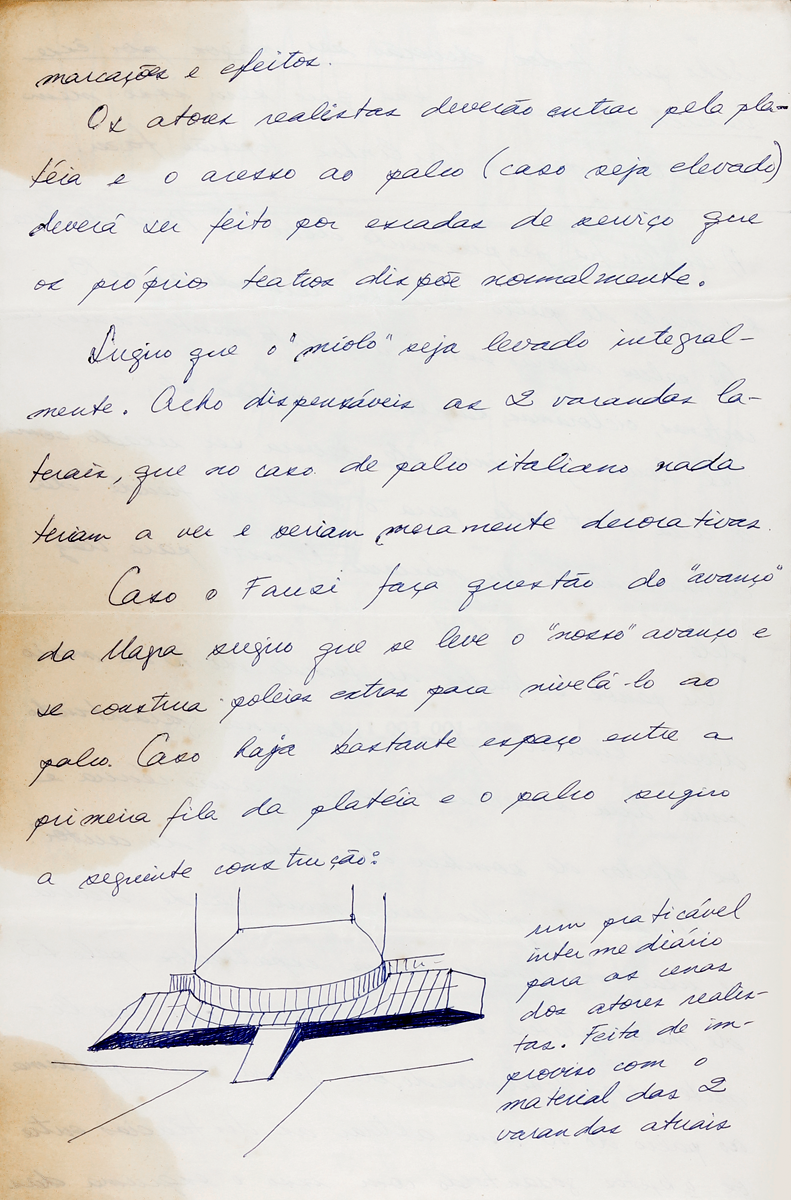 marcações e efeitos.
Os atores realistas deverão entrar pela pla-
téia e o acesso ao palco (caso seja elevado)
deverá ser feito por escadas de serviço que
os próprios teatros dispõe normalmente.
Sugiro que o "miolo" seja levado integral-
mente. Acho dispensáveis as 2 varandas la-
terais, que no caso de palco italiano nada
teriam a ver e seriam meramente decorativas.
Caso o Fauzi faça questão do "avanço"
da Magra sugiro que se leve o "nosso" avanço e
se construa poleias extras para nivelá-lo ao
palco. Caso haja bastante espaço entre a
primeira fila da platéia e o palco sugiro
a seguinte construção:
um praticável
intermediário
para as cenas
dos atores realis-
tas. Feita de im-
proviso com o
material das 2
varandas atuais